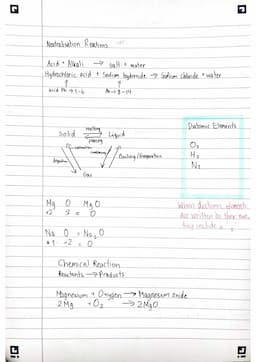 Neutralisation Reactions
Acid + Alkali → salt + water
Hydrochloric acid + Sodium hydroxide → Sodium chloride + water
acid Ph → 1-6
Ph → 8-14
Diatomic Elements
O₂
H₂
N₂
Solid
melting
freezing
Liquid
Boiling/Evaporation
Gas
When diatomic elements
are written by their own,
they include a 2
Mg O MgO
+2 -2 = 0
Na O = Na₂O
+1 -2 = 0
Chemical Reaction
Reactants → Products
Magnesium + Oxygen → Magnesium oxide
2Mg + O₂ → 2MgO